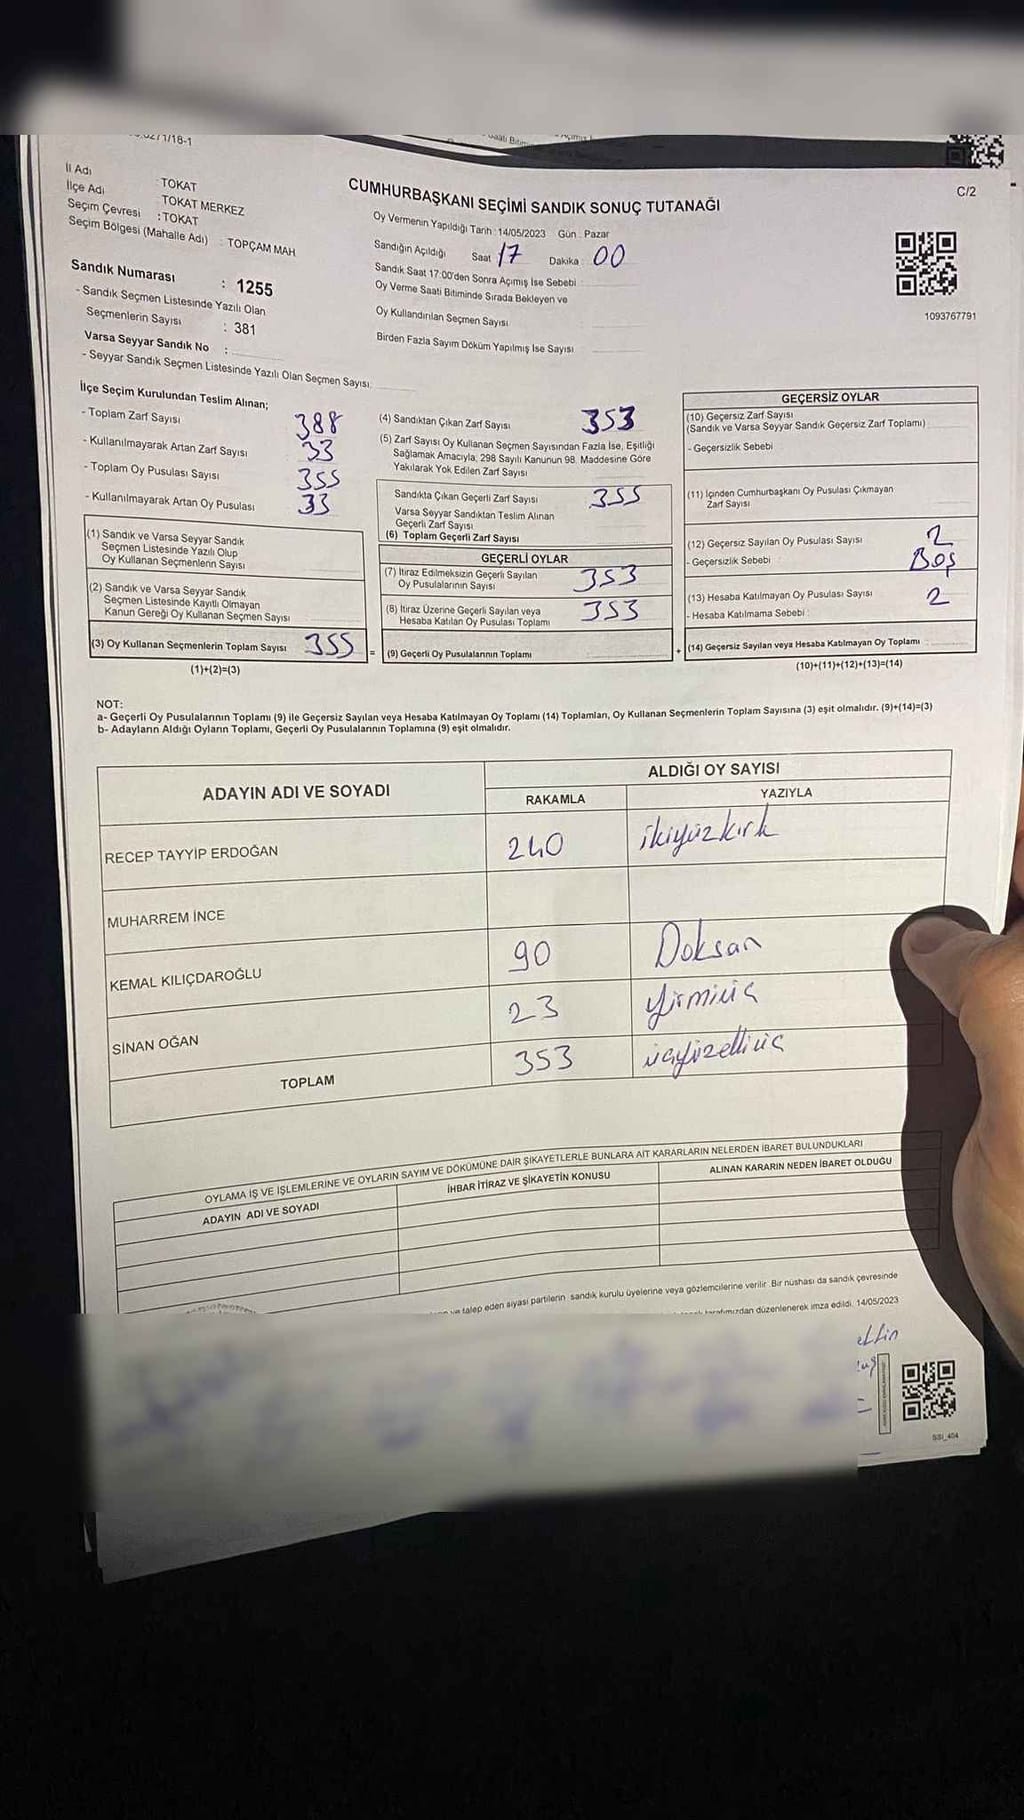 İl Adı : TOKAT
İlçe Adı : TOKAT MERKEZ
Seçim Çevresi : TOKAT
Seçim Bölgesi (Mahalle Adı) : TOPÇAM MAH
Sandık Numarası : 1255
- Sandık Seçmen Listesinde Yazılı Olan
Seçmenlerin Sayısı : 381
Varsa Seyyar Sandık No :
- Seyyar Sandık Seçmen Listesinde Yazılı Olan Seçmen Sayısı:
CUMHURBAŞKANI SEÇİMİ SANDIK SONUÇ TUTANAĞI
C/2
Oy Vermenin Yapıldığı Tarih : 14/05/2023 Gün : Pazar
Sandığın Açıldığı Saat 17 Dakika : 00
Sandık Saat 17:00'den Sonra Açımış İse Sebebi
Oy Verme Saati Bitiminde Sırada Bekleyen ve
Oy Kullandırılan Seçmen Sayısı
Birden Fazla Sayım Döküm Yapılmış İse Sayısı
1093767791
İlçe Seçim Kurulundan Teslim Alınan;
- Toplam Zarf Sayısı 388
- Kullanılmayarak Artan Zarf Sayısı 33
- Toplam Oy Pusulası Sayısı 355
- Kullanılmayarak Artan Oy Pusulası 33
(1) Sandık ve Varsa Seyyar Sandık
Seçmen Listesinde Yazılı Olup
Oy Kullanan Seçmenlerin Sayısı
(2) Sandık ve Varsa Seyyar Sandık
Seçmen Listesinde Kayıtlı Olmayan
Kanun Gereği Oy Kullanan Seçmen Sayısı
(3) Oy Kullanan Seçmenlerin Toplam Sayısı 355 =
(1)+(2)=(3)
(4) Sandıktan Çıkan Zarf Sayısı 353
(5) Zarf Sayısı Oy Kullanan Seçmen Sayısından Fazla İse, Eşitliği
Sağlamak Amacıyla, 298 Sayılı Kanunun 98. Maddesine Göre
Yakılarak Yok Edilen Zarf Sayısı
Sandıkta Çıkan Geçerli Zarf Sayısı 355
Varsa Seyyar Sandıktan Teslim Alınan
Geçerli Zarf Sayısı
(6) Toplam Geçerli Zarf Sayısı
GEÇERLİ OYLAR
(7) İtiraz Edilmeksizin Geçerli Sayılan
Oy Pusulalarının Sayısı 353
(8) İtiraz Üzerine Geçerli Sayılan veya
Hesaba Katılan Oy Pusulası Toplamı 353
(9) Geçerli Oy Pusulalarının Toplamı +
GEÇERSİZ OYLAR
(10) Geçersiz Zarf Sayısı
(Sandık ve Varsa Seyyar Sandık Geçersiz Zarf Toplamı)
- Geçersizlik Sebebi
(11) İçinden Cumhurbaşkanı Oy Pusulası Çıkmayan
Zarf Sayısı
(12) Geçersiz Sayılan Oy Pusulası Sayısı 2
- Geçersizlik Sebebi Boş
(13) Hesaba Katılmayan Oy Pusulası Sayısı 2
- Hesaba Katılmama Sebebi :
(14) Geçersiz Sayılan veya Hesaba Katılmayan Oy Toplamı
(10)+(11)+(12)+(13)=(14)
NOT:
a- Geçerli Oy Pusulalarının Toplamı (9) ile Geçersiz Sayılan veya Hesaba Katılmayan Oy Toplamı (14) Toplamları, Oy Kullanan Seçmenlerin Toplam Sayısına (3) eşit olmalıdır. (9)+(14)=(3)
b- Adayların Aldığı Oyların Toplamı, Geçerli Oy Pusulalarının Toplamına (9) eşit olmalıdır.
ADAYIN ADI VE SOYADI
ALDIĞI OY SAYISI
RAKAMLA YAZIYLA
RECEP TAYYİP ERDOĞAN 240 ikiyüzkırk
MUHARREM İNCE
KEMAL KILIÇDAROĞLU 90 Doksan
SİNAN OĞAN 23 yirmiüç
TOPLAM 353 üçyüzelliüç
OYLAMA İŞ VE İŞLEMLERİNE VE OYLARIN SAYIM VE DÖKÜMÜNE DAİR ŞİKAYETLERLE BUNLARA AİT KARARLARIN NELERDEN İBARET BULUNDUKLARI
ADAYIN ADI VE SOYADI İHBAR İTİRAZ VE ŞİKAYETİN KONUSU ALINAN KARARIN NEDEN İBARET OLDUĞU
talep eden siyasi partilerin sandık kurulu üyelerine veya gözlemcilerine verilir. Bir nüshası da sandık çevresinde
tarafımızdan düzenlenerek imza edildi. 14/05/2023